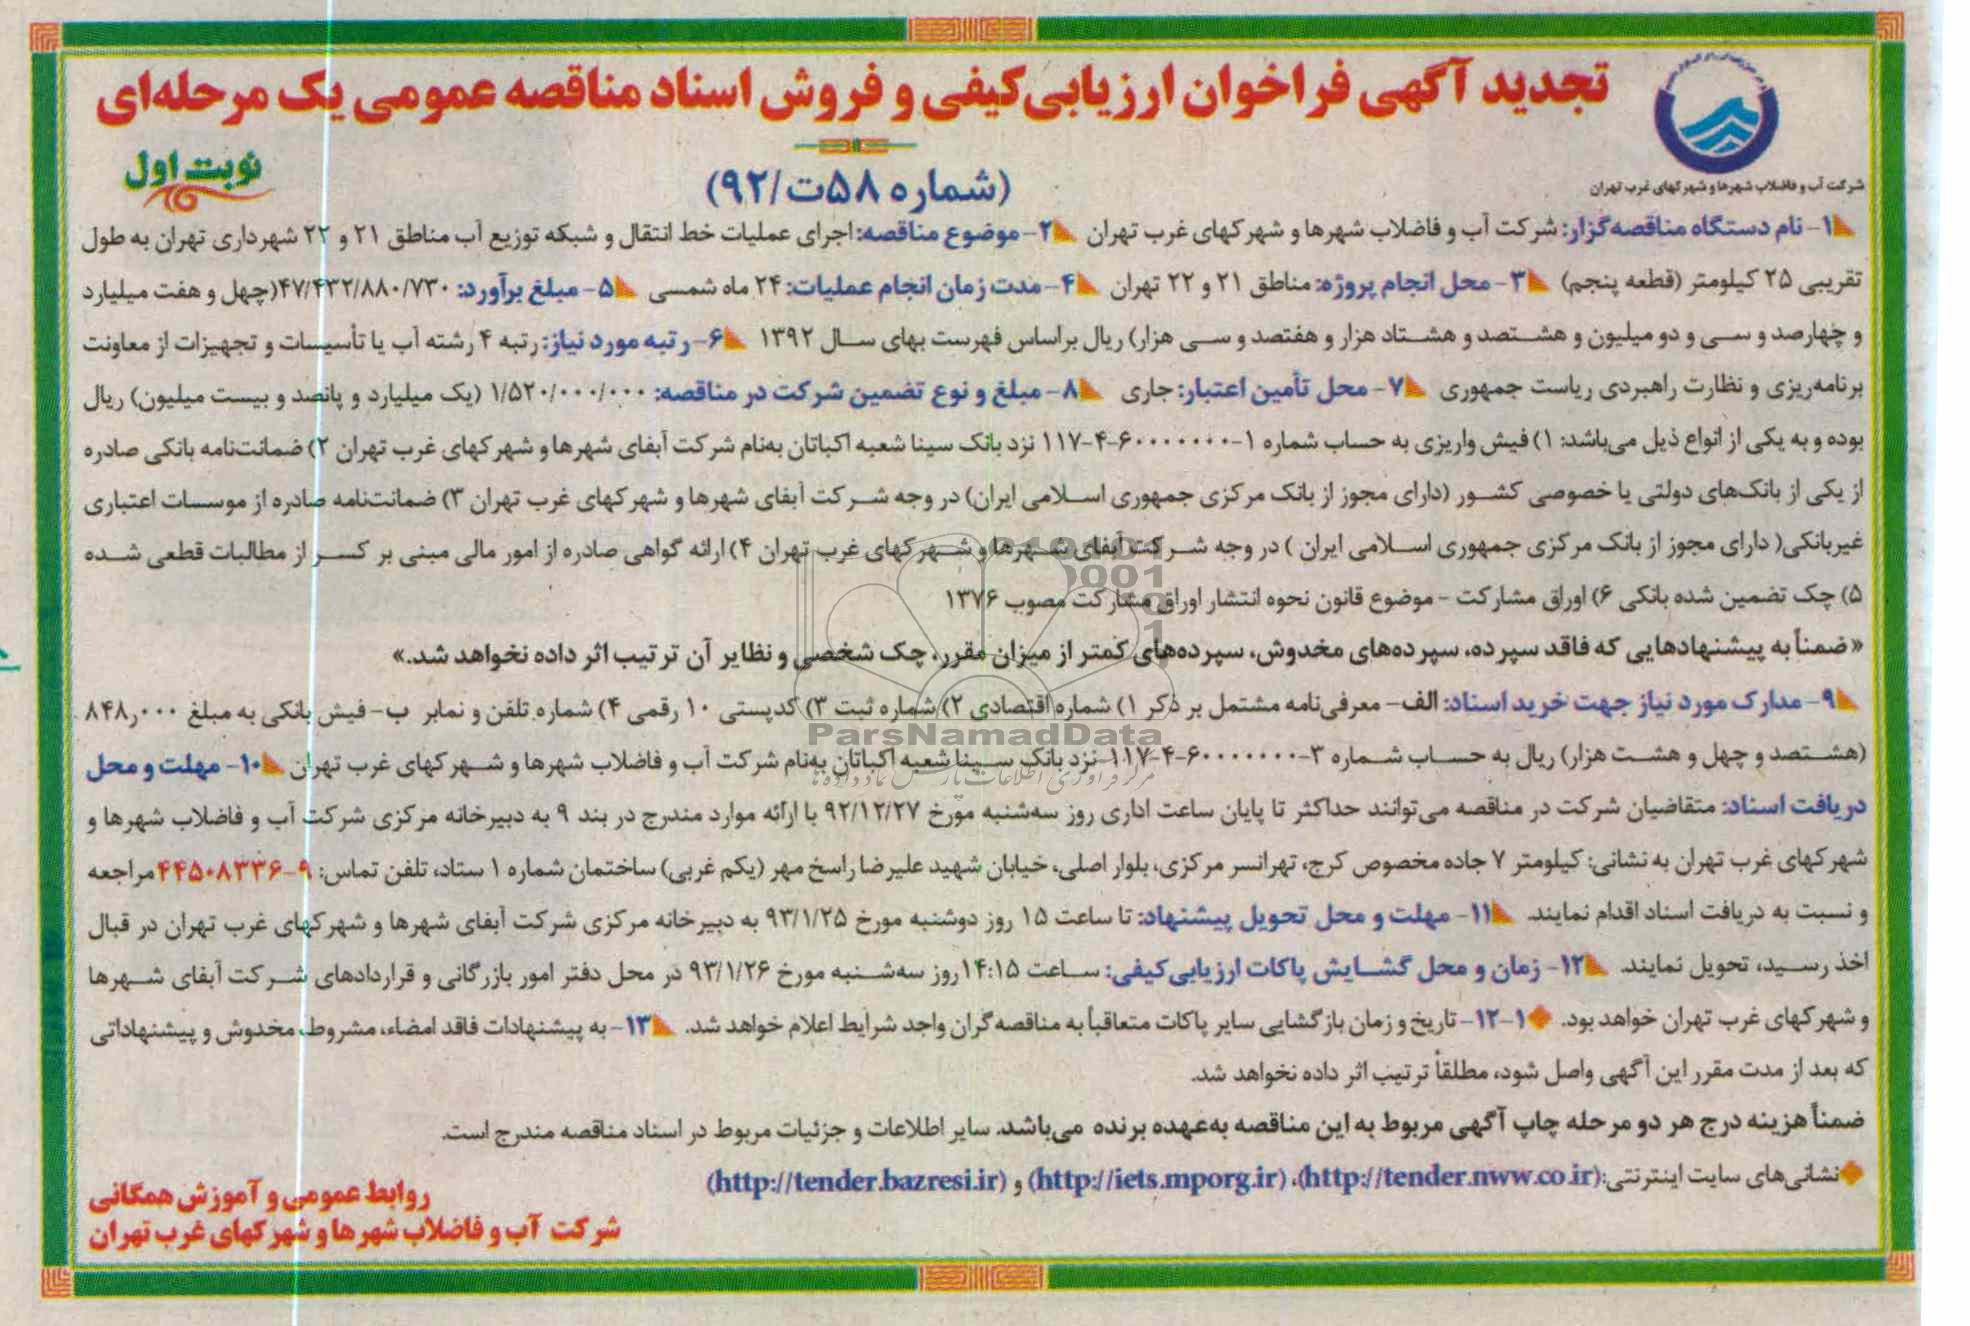 تجدید آگهی فراخوان ارزیابی کیفی و فروش اسناد مناقصه عمومی یک مرحله‌ای
شرکت آب و فاضلاب شهرها و شهرکهای غرب تهران
نوبت اول
(شماره ۵۸ت/۹۲)
۱- نام دستگاه مناقصه‌گزار: شرکت آب و فاضلاب شهرها و شهرکهای غرب تهران ۲- موضوع مناقصه: اجرای عملیات خط انتقال و شبکه توزیع آب مناطق ۲۱ و ۲۲ شهرداری تهران به طول
تقریبی ۲۵ کیلومتر (قطعه پنجم) ۳- محل انجام پروژه: مناطق ۲۱ و ۲۲ تهران ۴- مدت زمان انجام عملیات: ۲۴ ماه شمسی ۵- مبلغ برآورد: ۴۷/۴۳۲/۸۸۰/۷۳۰(چهل و هفت میلیارد
و چهارصد و سی و دو میلیون و هشتصد و هشتاد هزار و هفتصد و سی هزار) ریال براساس فهرست بهای سال ۱۳۹۲ ۶- رتبه مورد نیاز: رتبه ۴ رشته آب یا تأسیسات و تجهیزات از معاونت
برنامه‌ریزی و نظارت راهبردی ریاست جمهوری ۷- محل تأمین اعتبار: جاری ۸- مبلغ و نوع تضمین شرکت در مناقصه: ۱/۵۲۰/۰۰۰/۰۰۰ (یک میلیارد و پانصد و بیست میلیون) ریال
بوده و به یکی از انواع ذیل می‌باشد: ۱) فیش واریزی به حساب شماره ۱-۶۰۰۰۰۰۰۰-۴-۱۱۷ نزد بانک سینا شعبه اکباتان به‌نام شرکت آبفای شهرها و شهرکهای غرب تهران ۲) ضمانت‌نامه بانکی صادره
از یکی از بانک‌های دولتی یا خصوصی کشور (دارای مجوز از بانک مرکزی جمهوری اسلامی ایران) در وجه شرکت آبفای شهرها و شهرکهای غرب تهران ۳) ضمانت‌نامه صادره از موسسات اعتباری
غیربانکی( دارای مجوز از بانک مرکزی جمهوری اسلامی ایران ) در وجه شرکت آبفای شهرها و شهرکهای غرب تهران ۴) ارائه گواهی صادره از امور مالی مبنی بر کسر از مطالبات قطعی شده
۵) چک تضمین شده بانکی ۶) اوراق مشارکت - موضوع قانون نحوه انتشار اوراق مشارکت مصوب ۱۳۷۶
«ضمناً به پیشنهادهایی که فاقد سپرده، سپرده‌های مخدوش، سپرده‌های کمتر از میزان مقرر، چک شخصی و نظایر آن ترتیب اثر داده نخواهد شد.»
۹- مدارک مورد نیاز جهت خرید اسناد: الف- معرفی‌نامه مشتمل بر ذکر ۱) شماره اقتصادی ۲) شماره ثبت ۳) کدپستی ۱۰ رقمی ۴) شماره تلفن و نمابر ب- فیش بانکی به مبلغ ۸۴۸٫۰۰۰
ParsNamadData
(هشتصد و چهل و هشت هزار) ریال به حساب شماره ۳-۶۰۰۰۰۰۰۰-۴-۱۱۷ نزد بانک سینا شعبه اکباتان به‌نام شرکت آب و فاضلاب شهرها و شهرکهای غرب تهران ۱۰- مهلت و محل
مرکز فرآوری اطلاعات پارس نماد داده‌ها
دریافت اسناد: متقاضیان شرکت در مناقصه می‌توانند حداکثر تا پایان ساعت اداری روز سه‌شنبه مورخ ۹۲/۱۲/۲۷ با ارائه موارد مندرج در بند ۹ به دبیرخانه مرکزی شرکت آب و فاضلاب شهرها و
شهرکهای غرب تهران به نشانی: کیلومتر ۷ جاده مخصوص کرج، تهرانسر مرکزی، بلوار اصلی، خیابان شهید علیرضا راسخ مهر (یکم غربی) ساختمان شماره ۱ ستاد، تلفن تماس: ۹-۴۴۵۰۸۳۳۶ مراجعه
و نسبت به دریافت اسناد اقدام نمایند. ۱۱- مهلت و محل تحویل پیشنهاد: تا ساعت ۱۵ روز دوشنبه مورخ ۹۳/۱/۲۵ به دبیرخانه مرکزی شرکت آبفای شهرها و شهرکهای غرب تهران در قبال
اخذ رسید، تحویل نمایند. ۱۲- زمان و محل گشایش پاکات ارزیابی کیفی: ساعت ۱۴:۱۵ روز سه‌شنبه مورخ ۹۳/۱/۲۶ در محل دفتر امور بازرگانی و قراردادهای شرکت آبفای شهرها
و شهرکهای غرب تهران خواهد بود. ۱-۱۲- تاریخ و زمان بازگشایی سایر پاکات متعاقباً به مناقصه‌گران واجد شرایط اعلام خواهد شد. ۱۳- به پیشنهادات فاقد امضاء، مشروط، مخدوش و پیشنهاداتی
که بعد از مدت مقرر این آگهی واصل شود، مطلقاً ترتیب اثر داده نخواهد شد.
ضمناً هزینه درج هر دو مرحله چاپ آگهی مربوط به این مناقصه به‌عهده برنده می‌باشد. سایر اطلاعات و جزئیات مربوط در اسناد مناقصه مندرج است.
نشانی‌های سایت اینترنتی:(http://tender.nww.co.ir)، (http://iets.mporg.ir) و (http://tender.bazresi.ir)
روابط عمومی و آموزش همگانی
شرکت آب و فاضلاب شهرها و شهرکهای غرب تهران